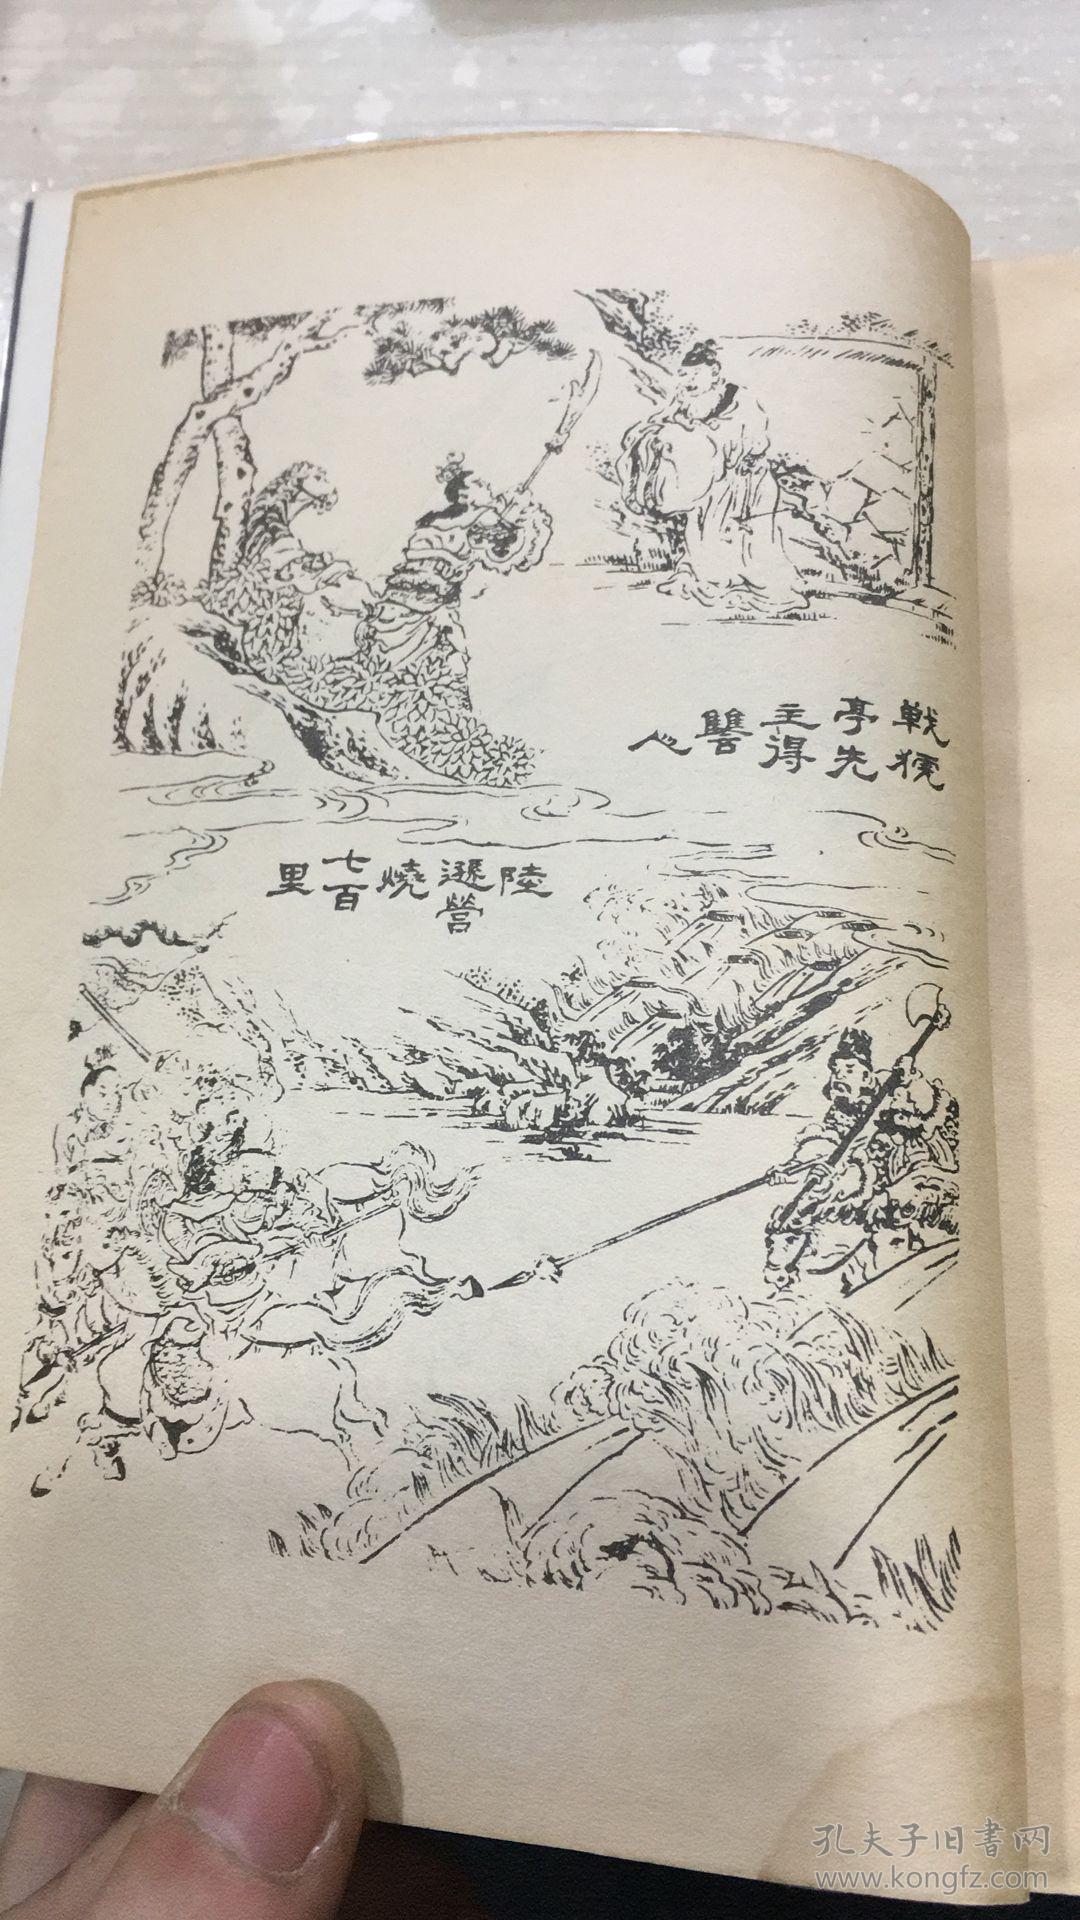 戰猇
亭先
主得
讐
人
陸
遜營
燒
七百
里
孔夫子旧書网
www.kongfz.com